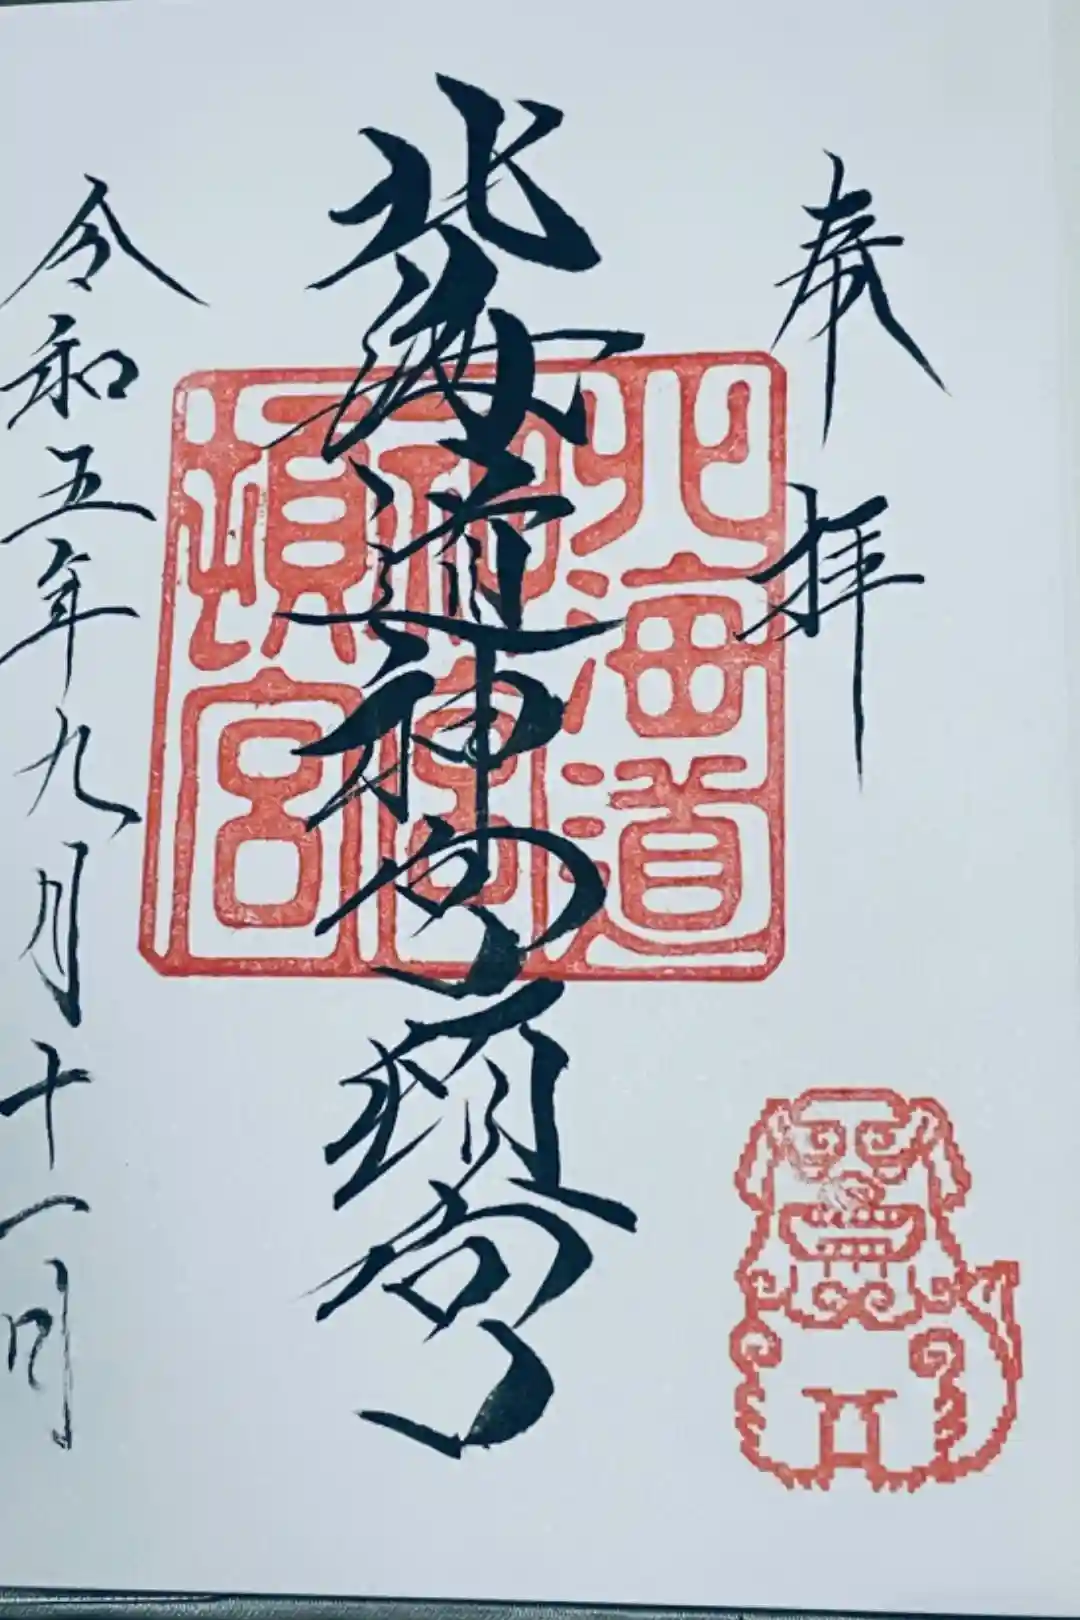 奉拝
北海道
神宮
頓宮
北海道神宮頓宮
令和五年九月十一日